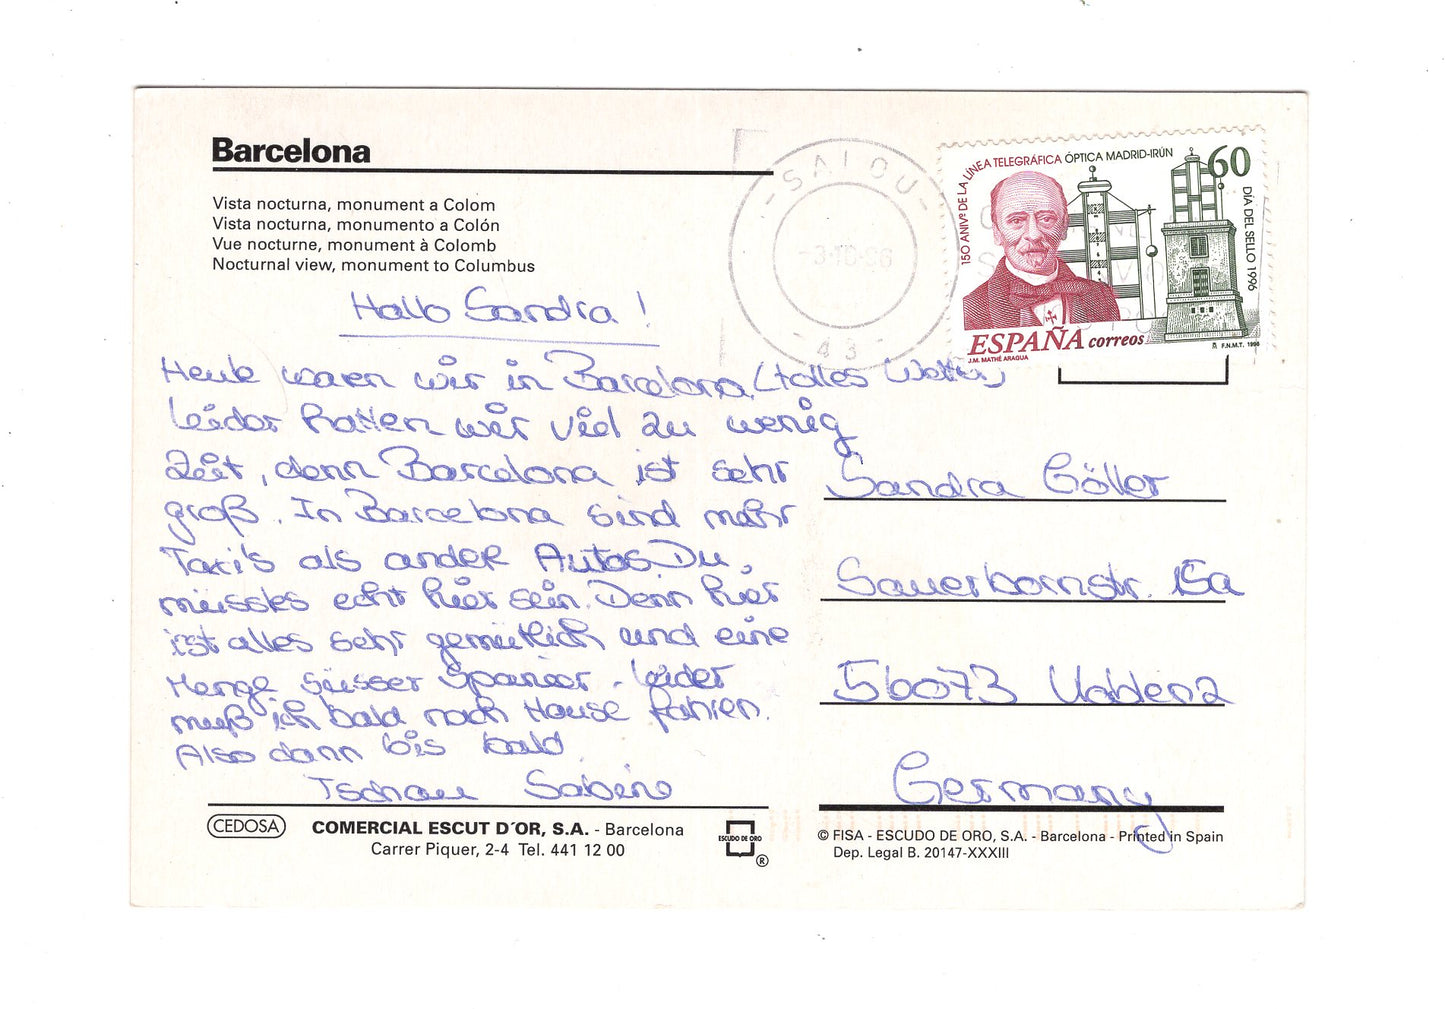 Barcelona
Vista nocturna, monument a Colom
Vista nocturna, monumento a Colón
Vue nocturne, monument à Colomb
Nocturnal view, monument to Columbus
SALOU
-3·10·96
43
150 ANIVº DE LA LÍNEA TELEGRÁFICA ÓPTICA MADRID-IRÚN
60
DÍA DEL SELLO 1996
ESPAÑA correos
J.M. MATHÉ ARAGUA
F.N.M.T. 1996
Hallo Sandra!
Heute waren wir in Barcelona (tolles Wetter)
Leider hatten wir viel zu wenig
Zeit, denn Barcelona ist sehr
groß. In Barcelona sind mehr
Taxi's als andere Autos Du,
müsstes echt hier sein. Denn hier
ist alles sehr gemütlich und eine
Menge süsser Spanier. Leider
muß ich bald nach Hause fahren.
Also dann bis bald
Tschau Sabine
Sandra Göller
Sauerbornstr.
56073
Germany
CEDOSA
COMERCIAL ESCUT D´OR, S.A. - Barcelona
Carrer Piquer, 2-4 Tel. 441 12 00
ESCUDO DE ORO
®
© FISA - ESCUDO DE ORO, S.A. - Barcelona - Printed in Spain
Dep. Legal B. 20147-XXXIII